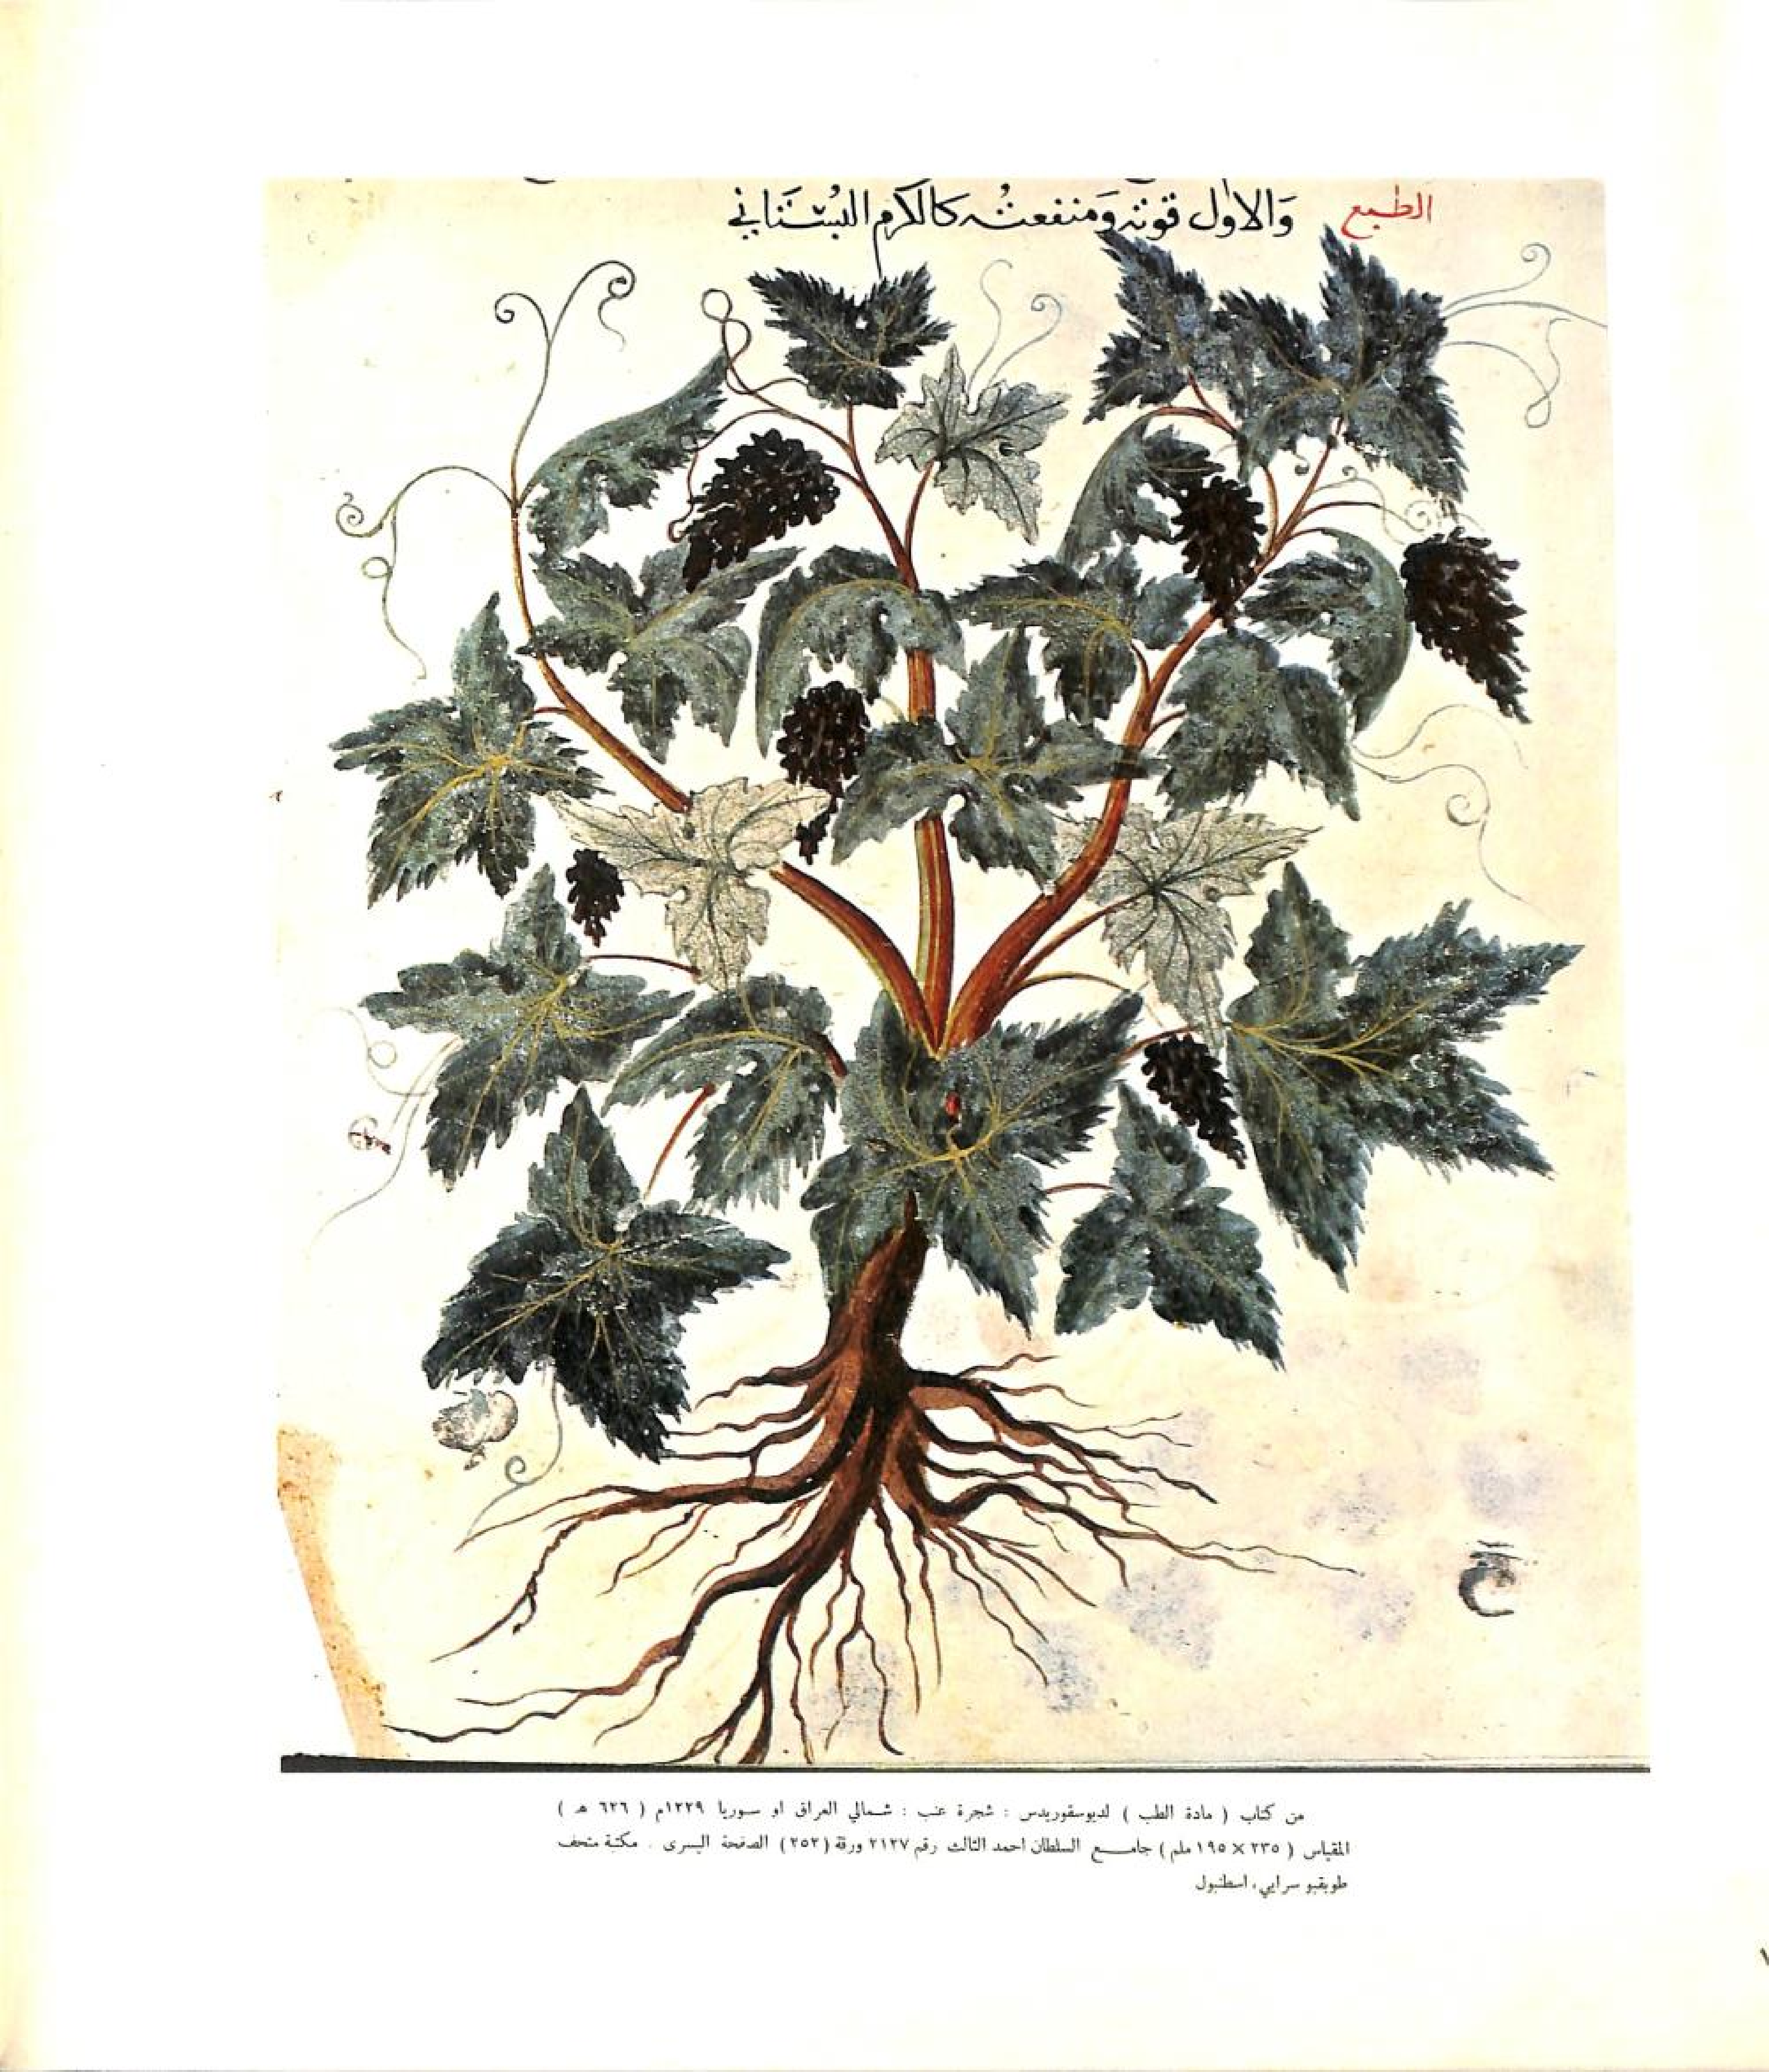 الطبع والاول قوته ومنفعته كالكرم البستاني
من كتاب ( مادة الطب ) لديوسقوريدس : شجرة عنب : شمالي العراق او سوريا ١٢٢٩م ( ٦٢٦ هـ )
المقياس ( ٢٣٥ × ١٩٥ ملم ) جامع السلطان احمد الثالث رقم ٢١٢٧ ورقة (٢٥٢) الصفحة اليسرى . مكتبة متحف
طوبقبو سرايي، اسطنبول